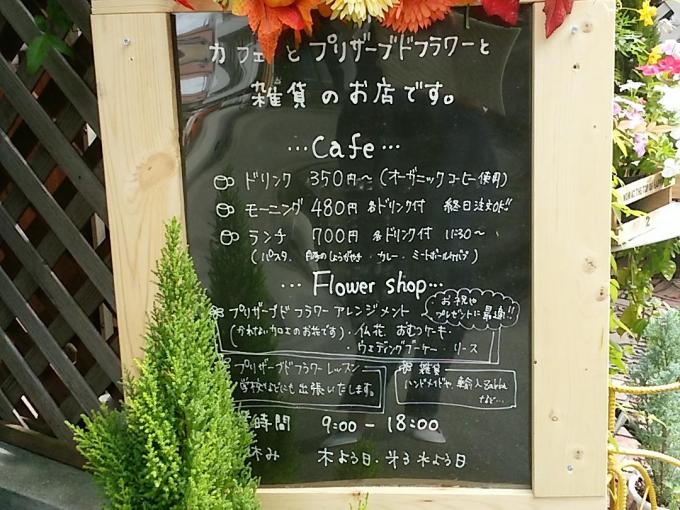 カフェとプリザーブドフラワーと
雑貨のお店です。
…Cafe…
ドリンク 350円～(オーガニックコーヒー使用)
モーニング 480円 各ドリンク付 終日注文OK!!
ランチ 700円 各ドリンク付 11:30～
(パスタ・豚のしょうがやき・カレー・ミートボールケバブ)
Flower shop…
プリザーブドフラワーアレンジメント
(かれない加工のお花です)・仏花、おむつケーキ・
・ウェディングブーケ・リース
お祝や
プレゼントに最適!!
プリザーブドフラワーレッスン
学校などにも出張いたします。
雑貨
ハンドメイドや、輸入
など…
時間 9:00 - 18:00
休み 木よう日・第3水よう日